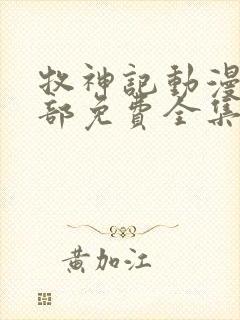 牧神記動漫
部免費全集
黃加江